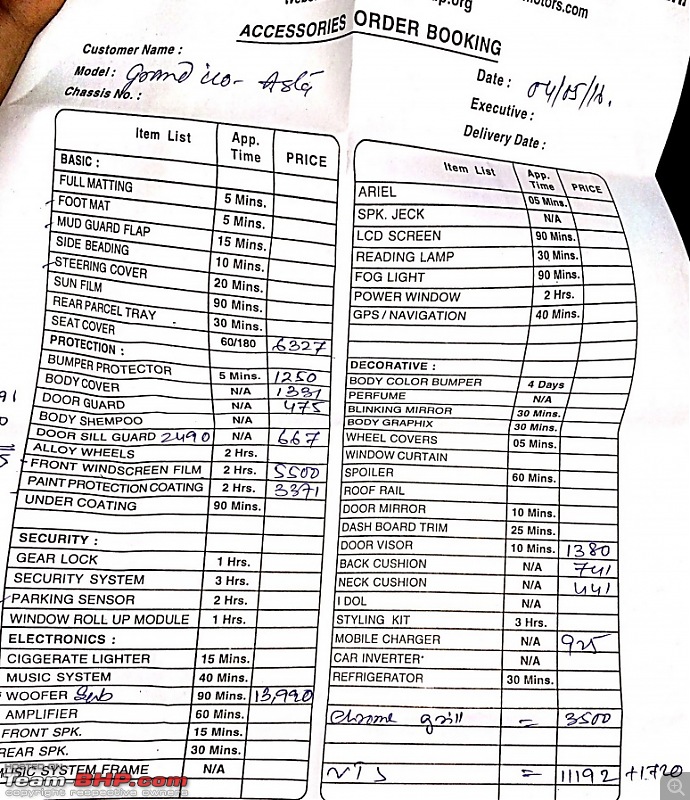 motors.com
ACCESSORIES ORDER BOOKING
Customer Name :
Model : Grand i10- Asta
Chassis No. :
Date : 04/05/16.
Executive :
Delivery Date :
Item List App. Time PRICE
BASIC :
FULL MATTING 5 Mins.
FOOT MAT 5 Mins.
MUD GUARD FLAP 15 Mins.
SIDE BEADING 10 Mins.
STEERING COVER 20 Mins.
SUN FILM 90 Mins.
REAR PARCEL TRAY 30 Mins.
SEAT COVER 60/180 6327
PROTECTION :
BUMPER PROTECTOR 5 Mins. 1250
BODY COVER N/A 1331
DOOR GUARD N/A 475
BODY SHEMPOO N/A
DOOR SILL GUARD 2490 N/A 667
ALLOY WHEELS 2 Hrs.
FRONT WINDSCREEN FILM 2 Hrs. 5500
PAINT PROTECTION COATING 2 Hrs. 3371
UNDER COATING 90 Mins.
SECURITY :
GEAR LOCK 1 Hrs.
SECURITY SYSTEM 3 Hrs.
PARKING SENSOR 2 Hrs.
WINDOW ROLL UP MODULE 1 Hrs.
ELECTRONICS :
CIGGERATE LIGHTER 15 Mins.
MUSIC SYSTEM 40 Mins.
WOOFER Sub 90 Mins. 13,990
AMPLIFIER 60 Mins.
FRONT SPK. 15 Mins.
REAR SPK. 30 Mins.
MUSIC SYSTEM FRAME N/A
Item List App. Time PRICE
ARIEL 05 Mins.
SPK. JECK N/A
LCD SCREEN 90 Mins.
READING LAMP 30 Mins.
FOG LIGHT 90 Mins.
POWER WINDOW 2 Hrs.
GPS / NAVIGATION 40 Mins.
DECORATIVE :
BODY COLOR BUMPER 4 Days
PERFUME N/A
BLINKING MIRROR 30 Mins.
BODY GRAPHIX 30 Mins.
WHEEL COVERS 05 Mins.
WINDOW CURTAIN
SPOILER 60 Mins.
ROOF RAIL
DOOR MIRROR 10 Mins.
DASH BOARD TRIM 25 Mins.
DOOR VISOR 10 Mins. 1380
BACK CUSHION N/A 741
NECK CUSHION N/A 441
I DOL N/A
STYLING KIT 3 Hrs.
MOBILE CHARGER N/A 925
CAR INVERTER N/A
REFRIGERATOR 30 Mins.
Chrome grill = 3500
= 11192 +1720
HOSTED ON
Team-BHP.com
copyright respective owners